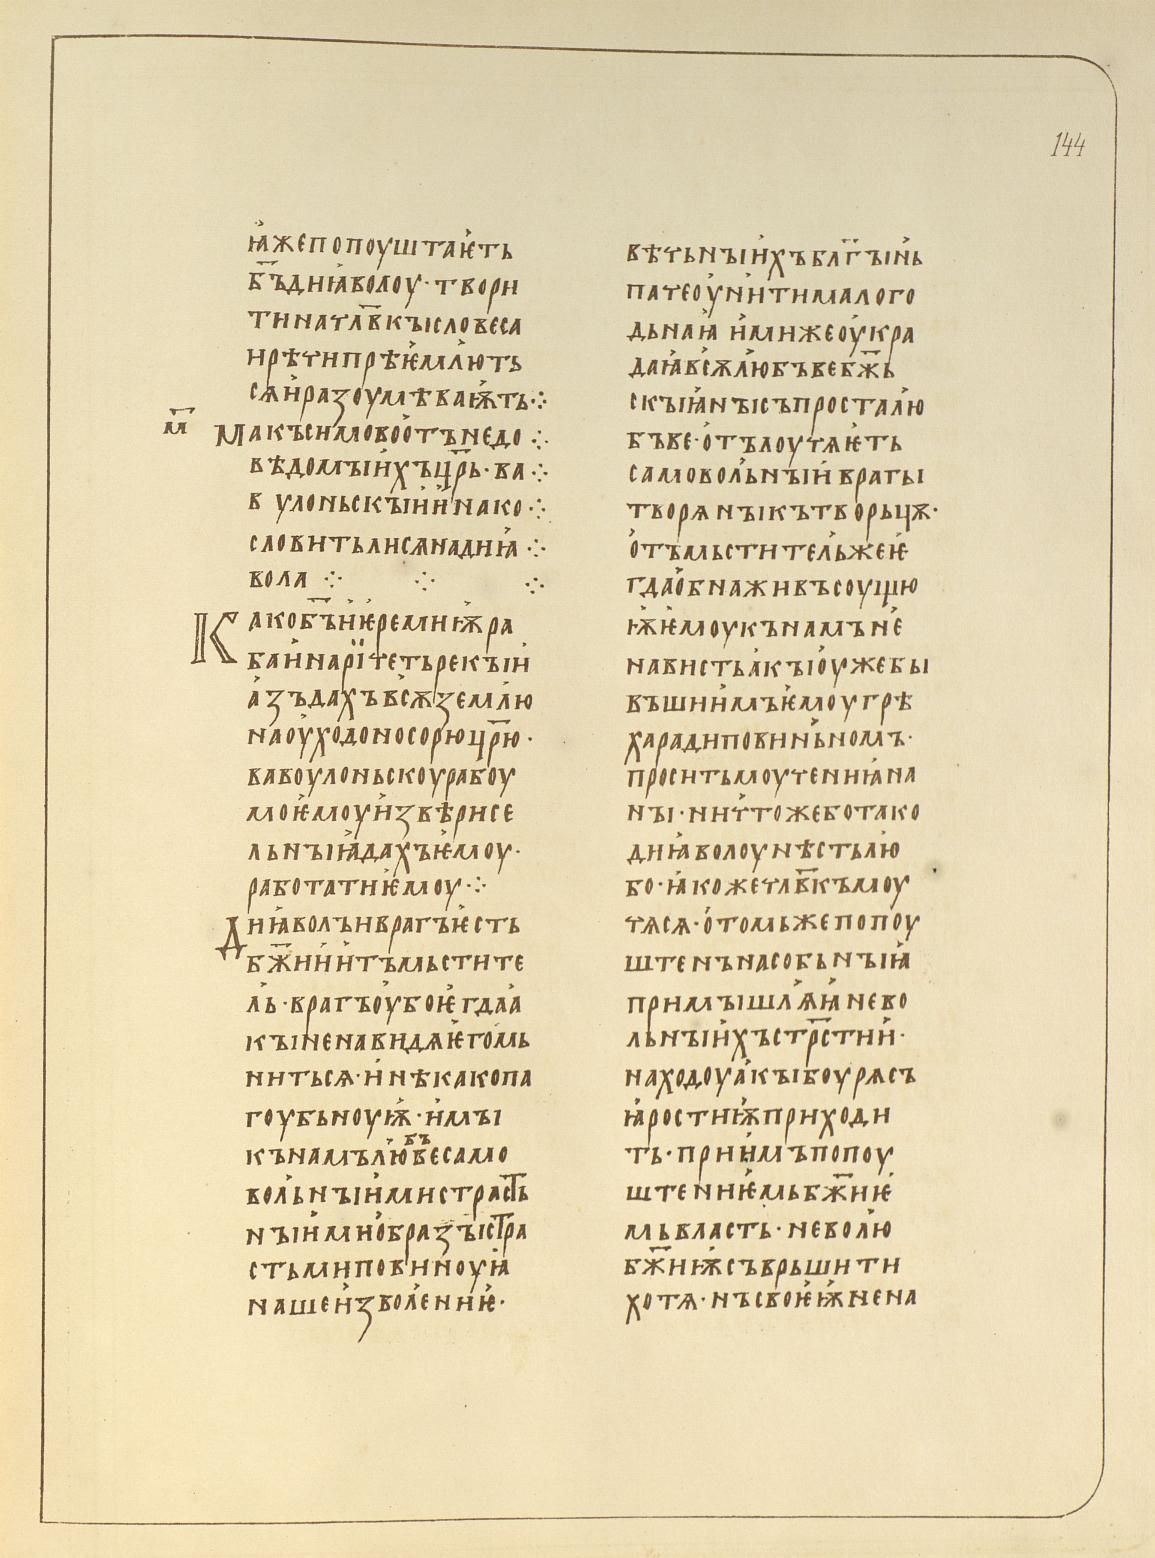 144
ꙗ҅жепопоушта҅ѥть
б҃ъдиꙗ҅волоу · твори
тиначл҃вкъісловеса
ирѣчипрѣѥ҅млѭ҅ть
сѧи҅разоумѣваѭ҅ть ·:·
м҃
Макъсимовоо҅тънедо ·:·
вѣдомъіи҅хъцр҃ь · ва ·:·
в улоньскъіи҅и҅нако ·:·
словитьлисѧнадиꙗ҅ ·:·
вола ·:· ·:· ·:·
Какоб҃ъи҅ѥ҅ремиѭ҅ра
баи҅нарїчетьрекъіи҅
а҅зъдахъвсѫ҅земл҄ю
нао҅уходоносорюцр҃ю ·
вавоулоньскоурабоу
моѥ҅моуи҅звѣрисе
льнъіꙗ҅дахъѥ҅моу ·
работатиѥ҅моу ·:·
Диꙗ҅волъиврагъѥ҅сть
бж҃ии҅и҅тъмьстите
л҄ь · врагъо҅убоѥ҅гдаа҅
къіненавидѧѥ҅гомь
нитьсѧ · и҅нѣкакопа
гоубьноую҅ · и҅мъі
кънамъл҄ю҅бъвесамо
вол҄ьнъіи҅мистрастⸯь
нъіи҅мио҅бразъістⸯра
стьмиповиноуꙗ҅
нашеи҅звол҄ениѥ҅ ·
вѣтьнъіи҅хъблг҃ъіи҅нь
патео҅учитималого
дьнаꙗ҅ и҅мижео҅укра
даꙗ҅всѫ҅л҄юбъвебж҃ь
скъіꙗ҅нъісъпростал҄ю
бъве · о҅тълоучѧѥ҅ть
самовол҄ьнъіи҅врагы
творѧнъікътворьцѫ ·
о҅тъмьстител҄ьжеѥ҅
гдао҅бнаживъсоущю
ѭ҅ѥ҅моукънамъне
навистьа҅къіо҅ужебы
въшии҅мъѥ҅моугрѣ
харадиповиньномъ ·
проситьмоучениꙗ҅на
нъі · ничтожеботако
диꙗ҅волоунѣстьл҄ю
бо · ꙗ҅кожечл҃вкъмоу
чѧсѧ · о҅томьжепопоу
штенънасобьнъіꙗ҅
примъішл҄ѧꙗ҅нево
льнъіи҅хъстр҃стии҅ ·
находоуа҅къібоурѧсъ
ꙗ҅ростиѭ҅приходи
ть · прии҅мъпопоу
штениѥ҅мьбж҃иѥ҅
мьвласть · невол҄ю
бж҃иѭ҅съврьшити
хотѧ · нъсвоѥ҅ѭ҅нена